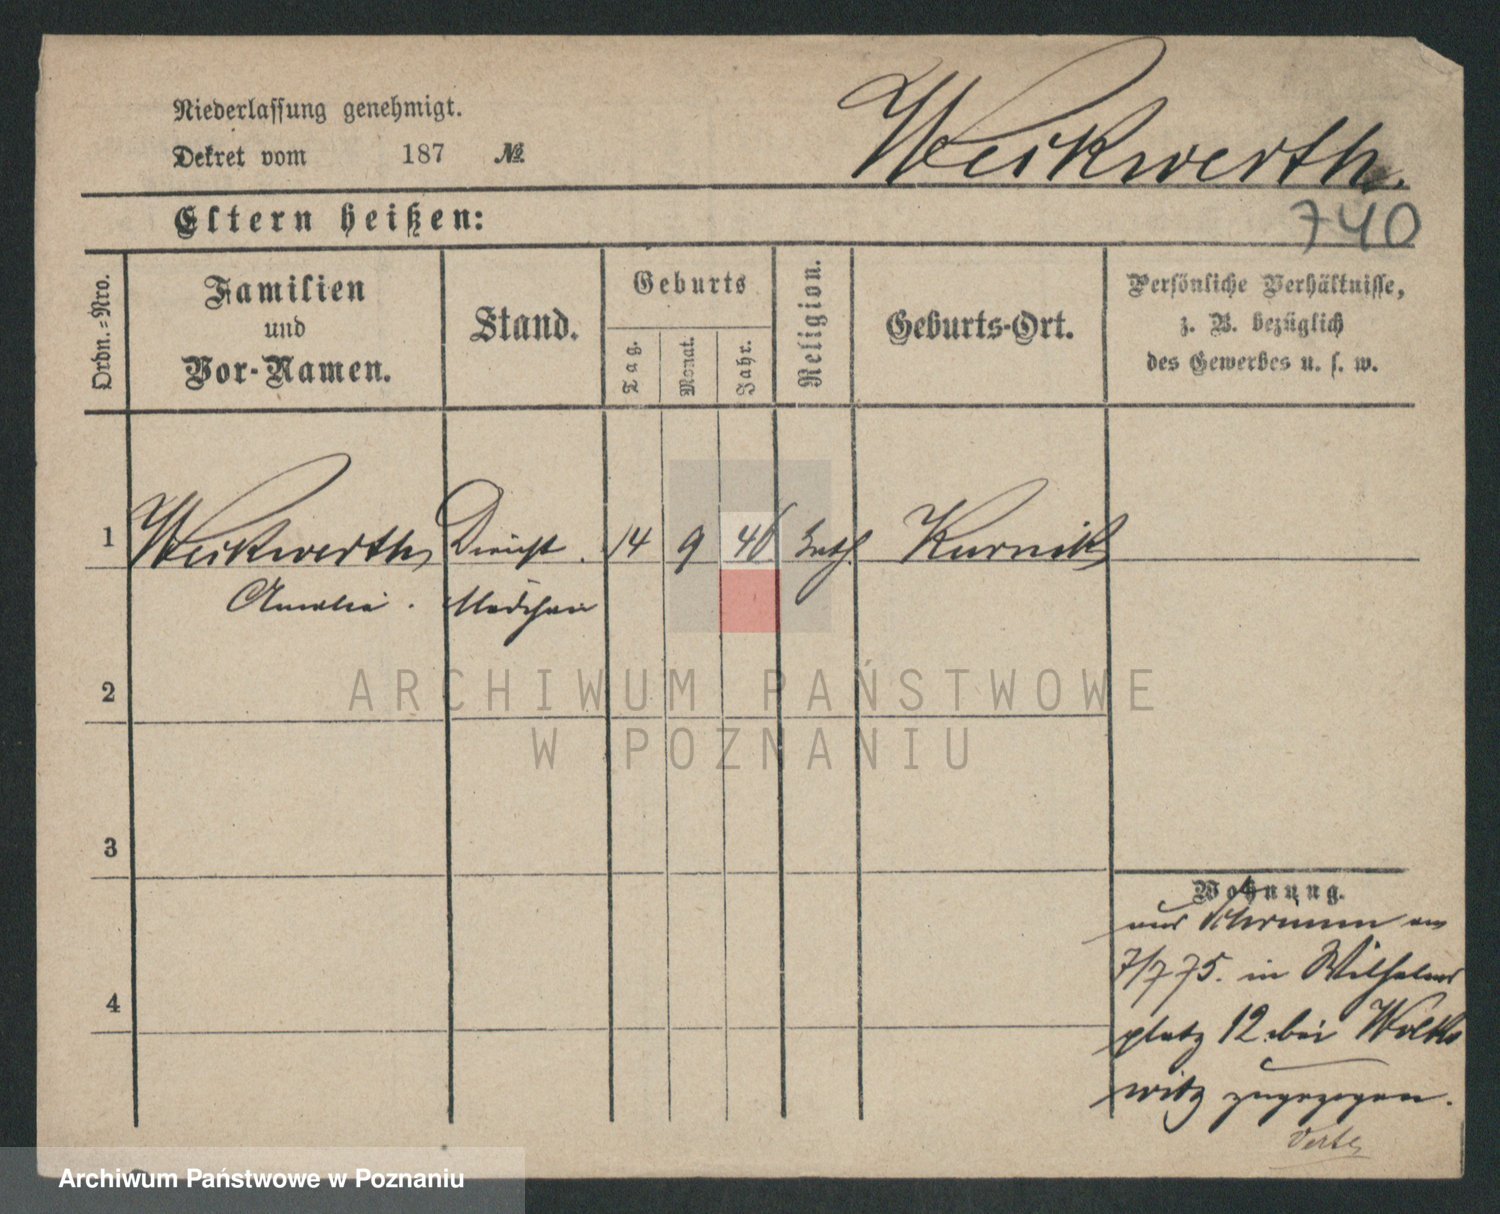 Niederlassung genehmigt.
Dekret vom 187 №
Weikwerth.
740
Eltern heißen:
Ordn.=Nro.
Familien
und
Vor-Namen.
Stand.
Geburts
Tag.
Monat.
Jahr.
Religion.
Geburts-Ort.
Persönliche Verhältnisse,
z. B. bezüglich
des Gewerbes u. s. w.
1 Weikwerth Dienst 14 9 46 Kurnik
Amalie. Mädchen
2
3
4
Wohnung.
aus Schrimm am
7/7 75. in Wilhelms
platz 12. bei
witz zugezogen.
ARCHIWUM PAŃSTWOWE
W POZNANIU
Archiwum Państwowe w Poznaniu